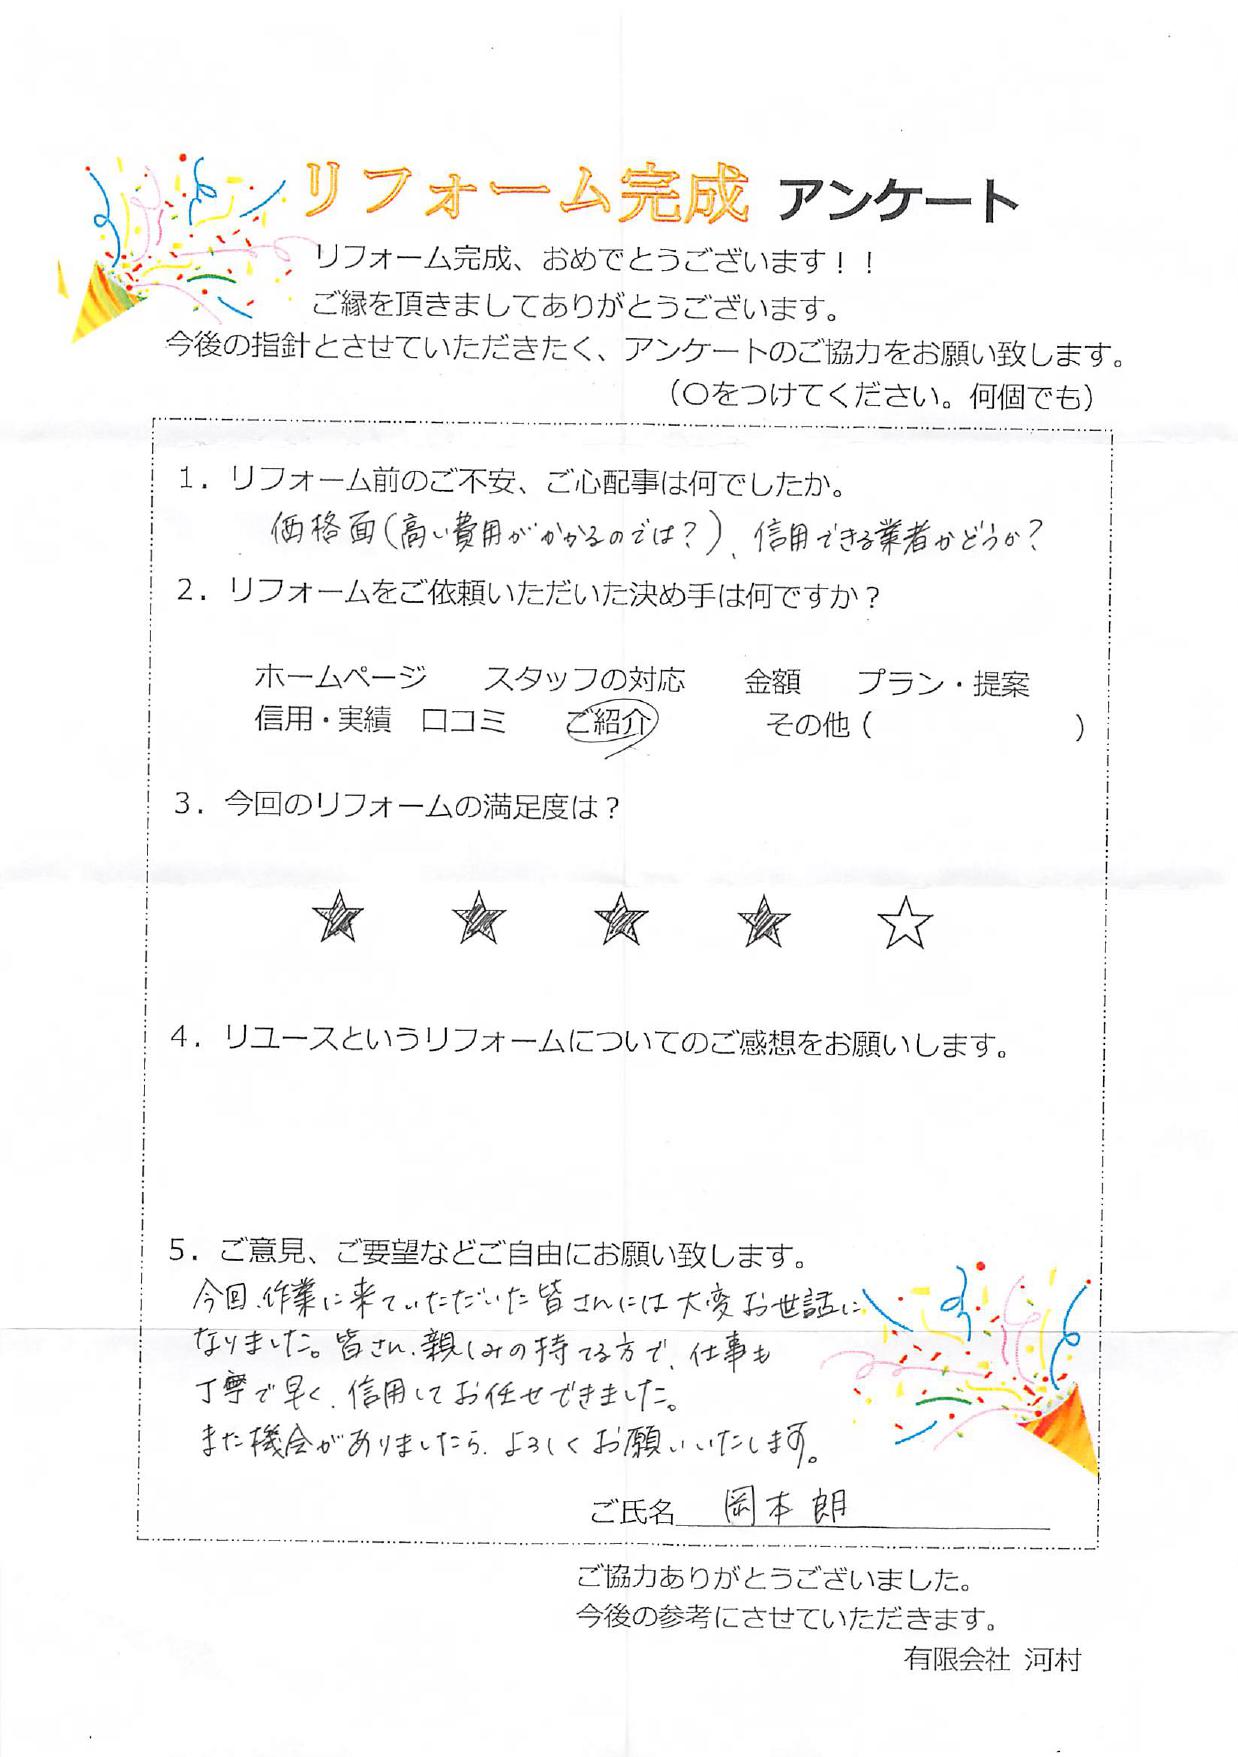 リフォーム完成 アンケート
リフォーム完成、おめでとうございます！！
ご縁を頂きましてありがとうございます。
今後の指針とさせていただきたく、アンケートのご協力をお願い致します。
（〇をつけてください。何個でも）
１．リフォーム前のご不安、ご心配事は何でしたか。
価格面(高い費用がかかるのでは？)、信用できる業者かどうか？
２．リフォームをご依頼いただいた決め手は何ですか？
ホームページ　スタッフの対応　金額　プラン・提案
信用・実績　口コミ　ご紹介　その他（　　　　　　　）
３．今回のリフォームの満足度は？
★ ★ ★ ★ ☆
４．リユースというリフォームについてのご感想をお願いします。
５．ご意見、ご要望などご自由にお願い致します。
今回、作業に来ていただいた皆さんには大変お世話に
なりました。皆さん、親しみの持てる方で、仕事も
丁寧で早く、信用してお任せできました。
また機会がありましたら、よろしくお願いいたします。
ご氏名　岡本朗
ご協力ありがとうございました。
今後の参考にさせていただきます。
有限会社 河村